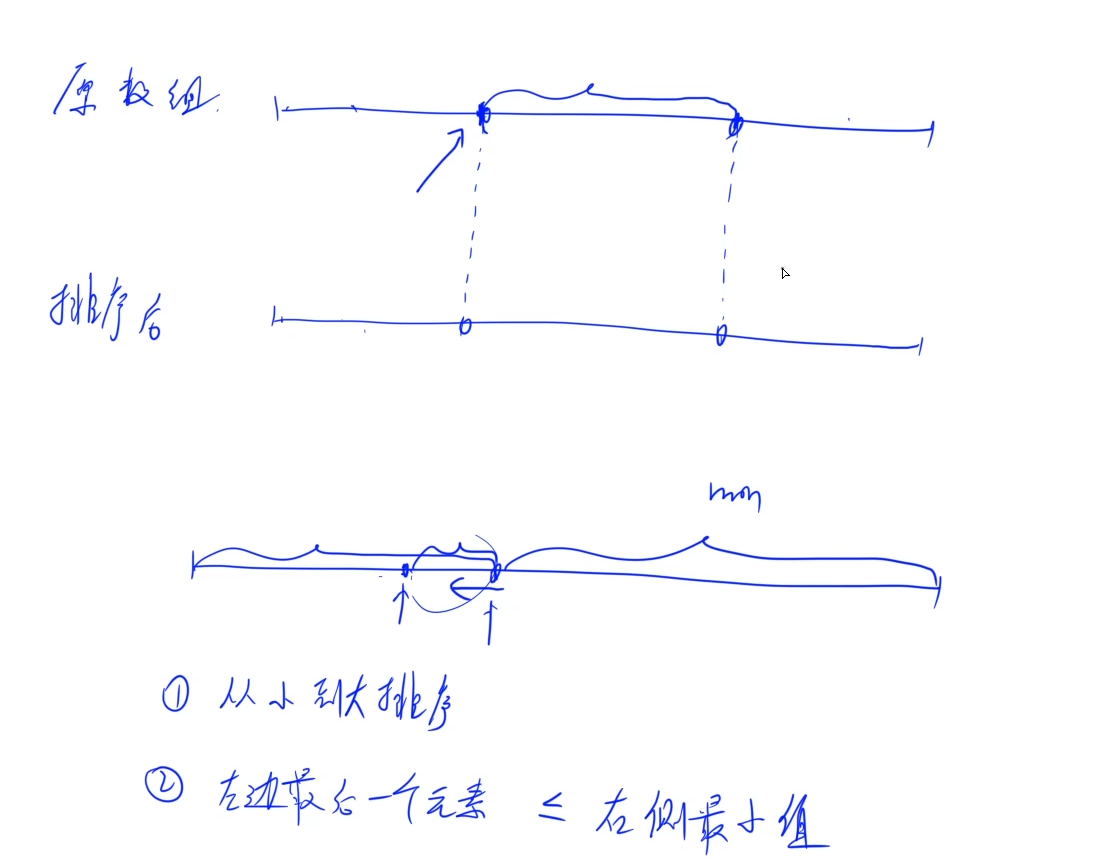 原数组
排序后
min
① 从小到大排序
② 左边最后一个元素 ≤ 右侧最小值